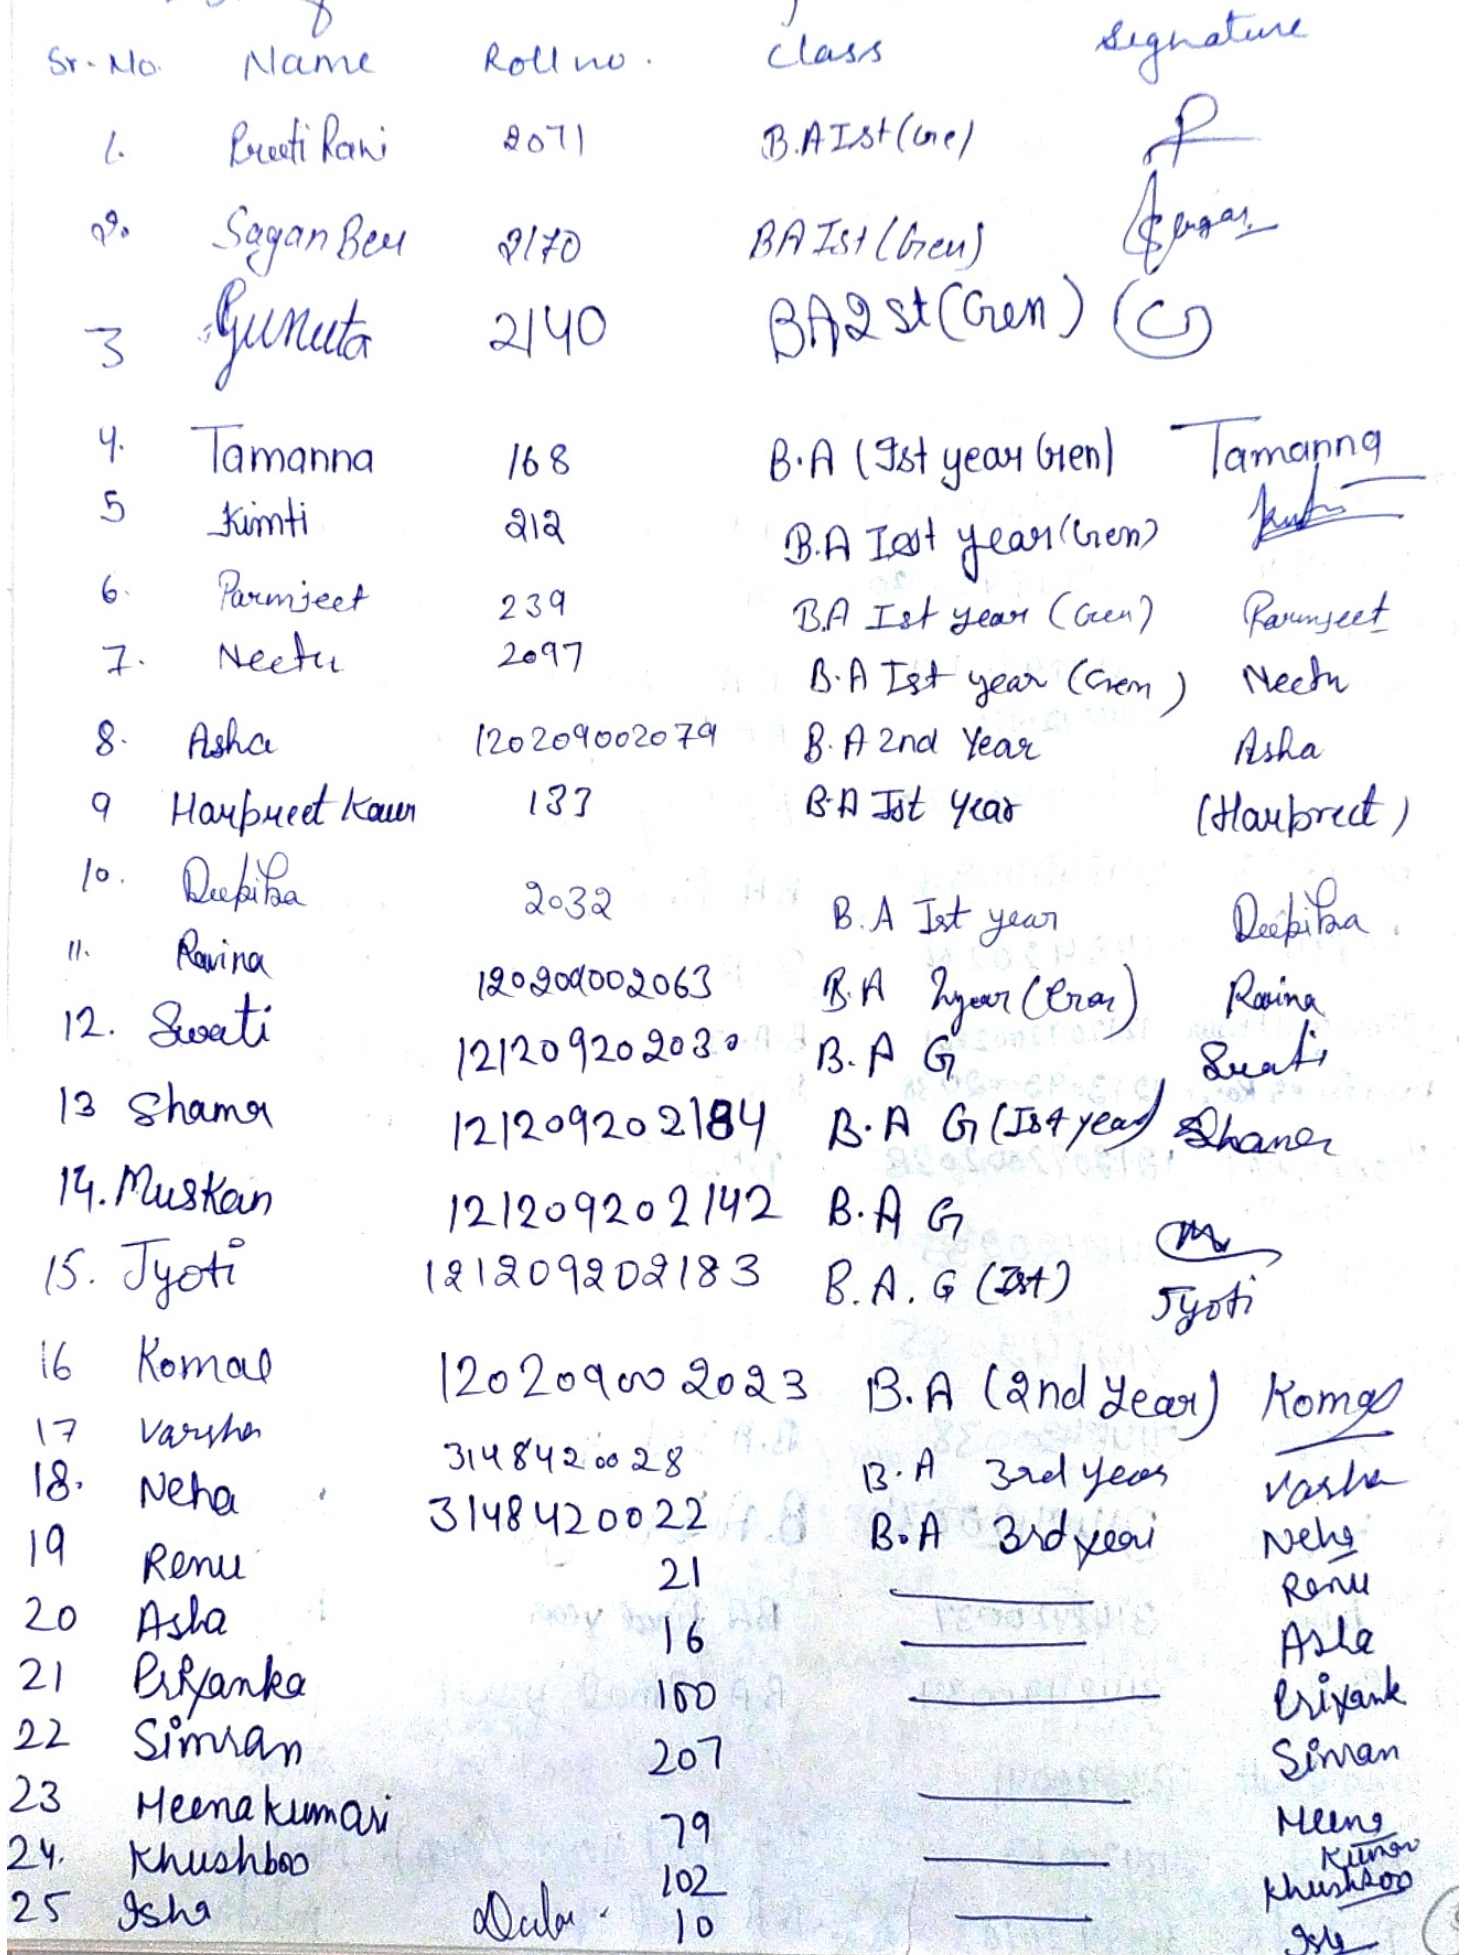 Sr. No. Name Roll no. Class Signature
1. Preeti Rani 2071 B.A Ist (Gne)
2. Sagan Beer 2170 BA Ist (Gen)
3 Gunuta 2140 BA 2 st (Gen) G
4. Tamanna 168 B.A (Ist year Gen) Tamanna
5 Kimti 212 B.A Iest year (Gen)
6. Parmjeet 239 B.A Ist year (Gen) Parmjeet
7. Neetu 2097 B.A Ist year (Gen) Neetu
8. Asha 120209002079 B.A 2nd Year Asha
9 Harpreet Kaur 133 B.A Ist Year (Harpreet)
10. Deepika 2032 B.A Ist year Deepika
11. Ravina 120209002063 B.A 2year Ravina
12. Swati 121209202030 B.A G Swati
13 Shama 121209202184 B.A G (Ist year) Shama
14. Muskan 121209202142 B.A G M
15. Jyoti 121209202183 B.A. G (Ist) Jyoti
16 Komal 120209002023 B.A (2nd Year) Komal
17 Varsha 3148420028 B.A 3rd year Varsha
18. Neha 3148420022 B.A 3rd year Neha
19 Renu 21 Renu
20 Asha 16 Asha
21 Priyanka 100 Priyank
22 Simran 207 Simran
23 Meena kumari 79 Meena Kumari
24. Khushboo 102 Khushboo
25 Isha 10 Isha